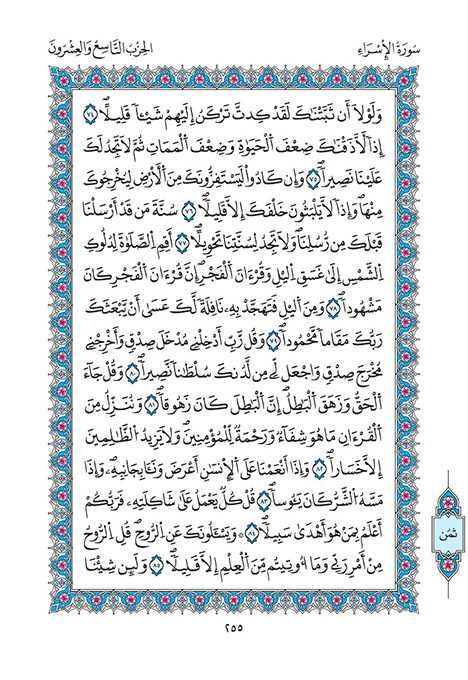 سُورَةُ الْإِسْرَاءِ
الحِزْبُ التَّاسِعُ وَالْعِشْرُونَ
وَلَوْلَا أَن ثَبَّتْنَٰكَ لَقَدْ كِدتَّ تَرْكَنُ إِلَيْهِمْ شَيْـٔاً قَلِيلًا ٧٤
إِذاً لَّأَذَقْنَٰكَ ضِعْفَ اَلْحَيَوٰةِ وَضِعْفَ اَلْمَمَاتِ ثُمَّ لَا تَجِدُ لَكَ
عَلَيْنَا نَصِيراً ٧٥ وَإِن كَادُواْ لَيَسْتَفِزُّونَكَ مِنَ اَلْأَرْضِ لِيُخْرِجُوكَ
مِنْهَا وَإِذاً لَّا يَلْبَثُونَ خَلْفَكَ إِلَّا قَلِيلًا ٧٦ سُنَّةَ مَن قَدْ أَرْسَلْنَا
قَبْلَكَ مِن رُّسُلِنَا وَلَا تَجِدُ لِسُنَّتِنَا تَحْوِيلًا ٧٧ أَقِمِ اِلصَّلَوٰةَ لِدُلُوكِ
اِلشَّمْسِ إِلَىٰ غَسَقِ اِلَّيْلِ وَقُرْءَانَ اَلْفَجْرِ إِنَّ قُرْءَانَ اَلْفَجْرِ كَانَ
مَشْهُوداً ٧٨ وَمِنَ اَلَّيْلِ فَتَهَجَّدْ بِهِۦ نَافِلَةً لَّكَ عَسَىٰ أَن يَّبْعَثَكَ
رَبُّكَ مَقَاماً مَّحْمُوداً ٧٩ وَقُل رَّبِّ أَدْخِلْنِي مُدْخَلَ صِدْقٍ وَأَخْرِجْنِي
مُخْرَجَ صِدْقٍ وَاجْعَل لِّي مِن لَّدُنكَ سُلْطَٰناً نَّصِيراً ٨٠ وَقُلْ جَآءَ
اَلْحَقُّ وَزَهَقَ اَلْبَٰطِلُ إِنَّ اَلْبَٰطِلَ كَانَ زَهُوقاً ٨١ وَنُنزِلُ مِنَ
اَلْقُرْءَانِ مَا هُوَ شِفَآءٌ وَرَحْمَةٌ لِّلْمُؤْمِنِينَ وَلَا يَزِيدُ اُلظَّٰلِمِينَ
إِلَّا خَسَاراً ٨٢ وَإِذَا أَنْعَمْنَا عَلَى اَلْإِنسَٰنِ أَعْرَضَ وَنَـَٔا بِجَانِبِهِۦ وَإِذَا
مَسَّهُ اُلشَّرُّ كَانَ يَـُٔوساً ٨٣ قُلْ كُلٌّ يَعْمَلُ عَلَىٰ شَاكِلَتِهِۦ فَرَبُّكُمْ
أَعْلَمُ بِمَنْ هُوَ أَهْدَىٰ سَبِيلًا ٨٤ ۞ وَيَسْـَٔلُونَكَ عَنِ اِلرُّوحِ قُلِ اِلرُّوحُ
مِنْ أَمْرِ رَبِّي وَمَا أُوتِيتُم مِّنَ اَلْعِلْمِ إِلَّا قَلِيلًا ٨٥ وَلَئِن شِئْنَا
ثمُن
٢٥٥